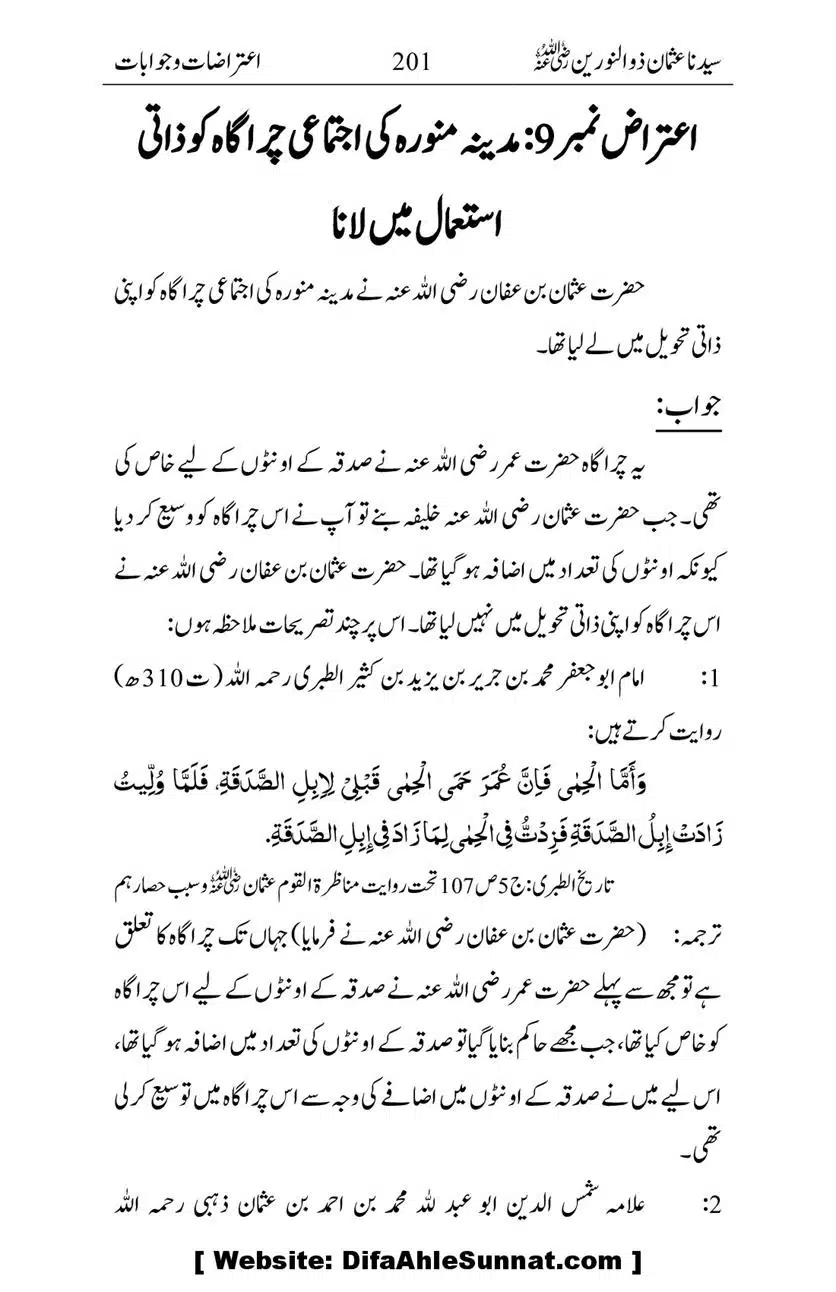 سیدنا عثمان ذوالنورین رضی اللہ عنہ 201 اعتراضات و جوابات
اعتراض نمبر 9: مدینہ منورہ کی اجتماعی چراگاہ کو ذاتی
استعمال میں لانا
حضرت عثمان بن عفان رضی اللہ عنہ نے مدینہ منورہ کی اجتماعی چراگاہ کو اپنی
ذاتی تحویل میں لے لیا تھا۔
جواب:
یہ چراگاہ حضرت عمر رضی اللہ عنہ نے صدقہ کے اونٹوں کے لیے خاص کی
تھی۔ جب حضرت عثمان رضی اللہ عنہ خلیفہ بنے تو آپ نے اس چراگاہ کو وسیع کر دیا
کیونکہ اونٹوں کی تعداد میں اضافہ ہو گیا تھا۔ حضرت عثمان بن عفان رضی اللہ عنہ نے
اس چراگاہ کو اپنی ذاتی تحویل میں نہیں لیا تھا۔ اس پر چند تصریحات ملاحظہ ہوں:
1: امام ابو جعفر محمد بن جریر بن یزید بن کثیر الطبری رحمہ اللہ (ت310ھ)
روایت کرتے ہیں:
وَأَمَّا الْحِمٰى فَإِنَّ عُمَرَ حَمَى الْحِمٰى قَبْلِيْ لِإِبِلِ الصَّدَقَةِ، فَلَمَّا وُلِّيتُ
زَادَتْ إِبِلُ الصَّدَقَةِ فَزِدْتُّ فِي الْحِمٰى لِمَا زَادَ فِي إِبِلِ الصَّدَقَةِ.
تاریخ الطبری: ج5 ص107 تحت روایت مناظرۃ القوم عثمان رضی اللہ عنہ وسبب حصارهم
ترجمہ: (حضرت عثمان بن عفان رضی اللہ عنہ نے فرمایا) جہاں تک چراگاہ کا تعلق
ہے تو مجھ سے پہلے حضرت عمر رضی اللہ عنہ نے صدقہ کے اونٹوں کے لیے اس چراگاہ
کو خاص کیا تھا، جب مجھے حاکم بنایا گیا تو صدقہ کے اونٹوں کی تعداد میں اضافہ ہو گیا تھا،
اس لیے میں نے صدقہ کے اونٹوں میں اضافے کی وجہ سے اس چراگاہ میں توسیع کر لی
تھی۔
2: علامہ شمس الدین ابو عبد للہ محمد بن احمد بن عثمان ذہبی رحمہ اللہ
[ Website: DifaAhleSunnat.com ]